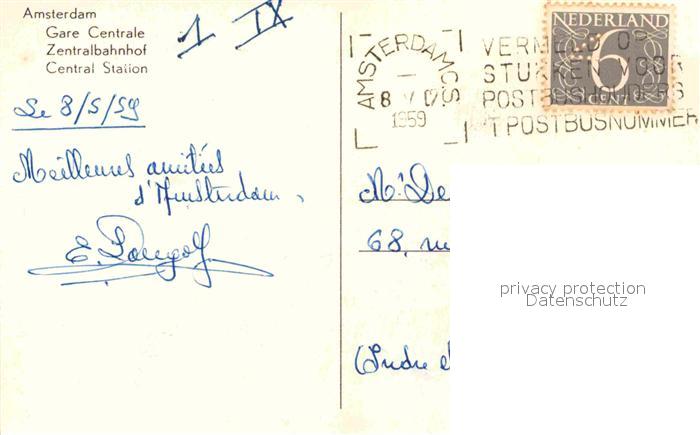 Amsterdam
Gare Centrale
Zentralbahnhof
Central Station
1 IX
Le 8/5/59
Meilleures amitiés
d'Amsterdam,
AMSTERDAM CS
8 V
1959
VERMELD OP
STUKKEN VOOR
POSTBUSHOUDERS
'T POSTBUSNUMMER
NEDERLAND
6
CENT
68, ru
(Indre
privacy protection
Datenschutz